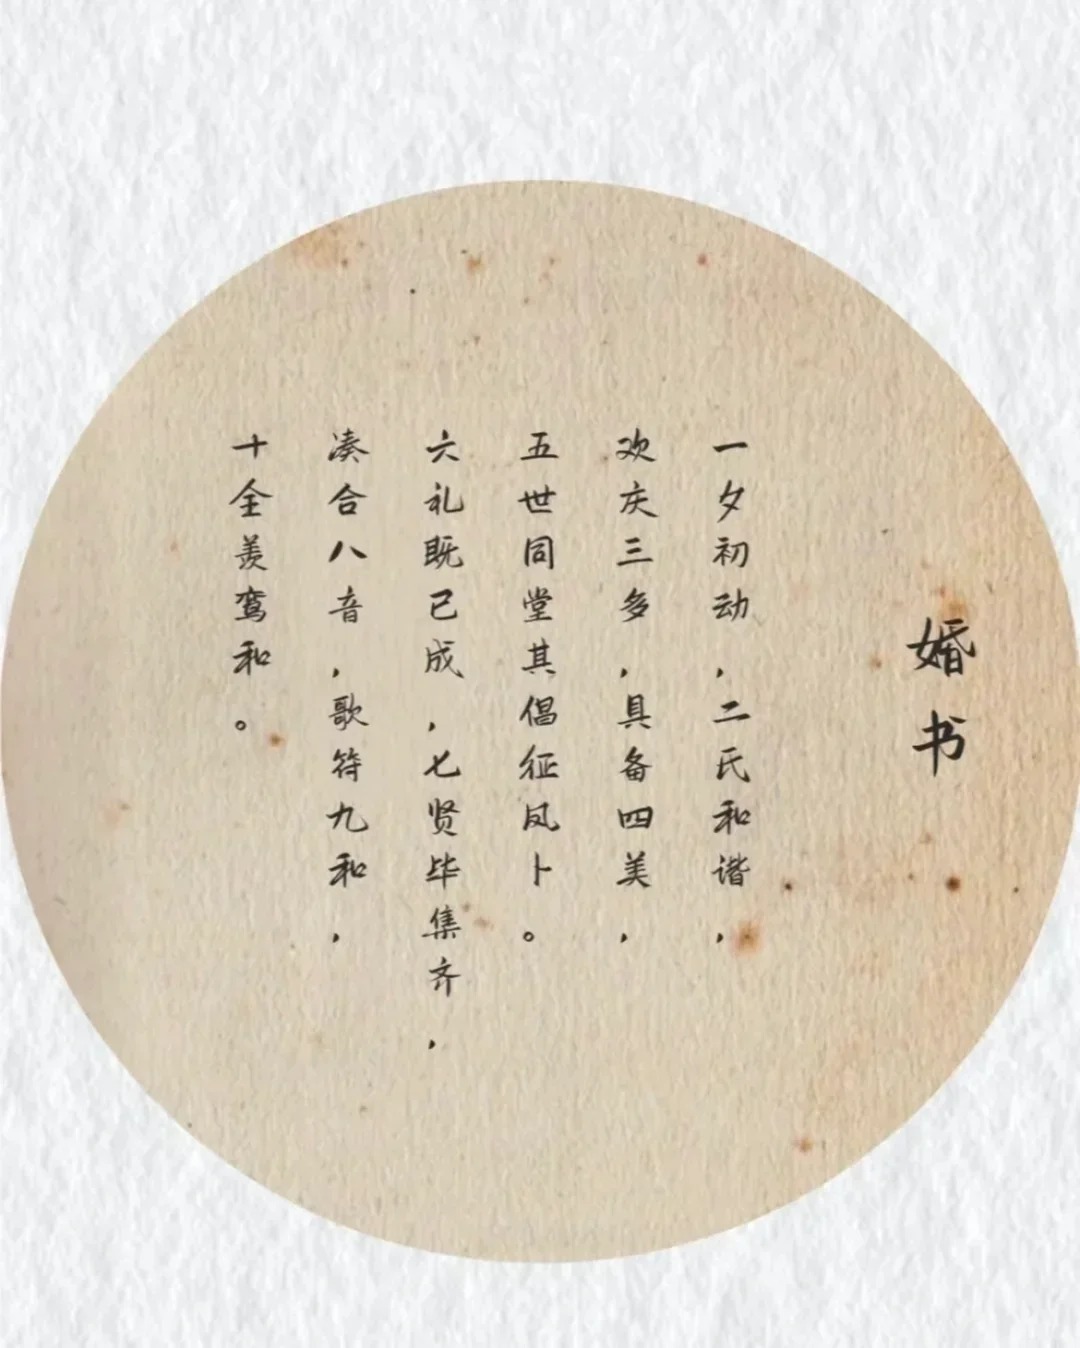 婚书
一夕初动，二氏和谐，
欢庆三多，具备四美，
五世同堂其倡征凤卜。
六礼既已成，七贤毕集齐，
凑合八音，歌符九和，
十全羡鸾和。